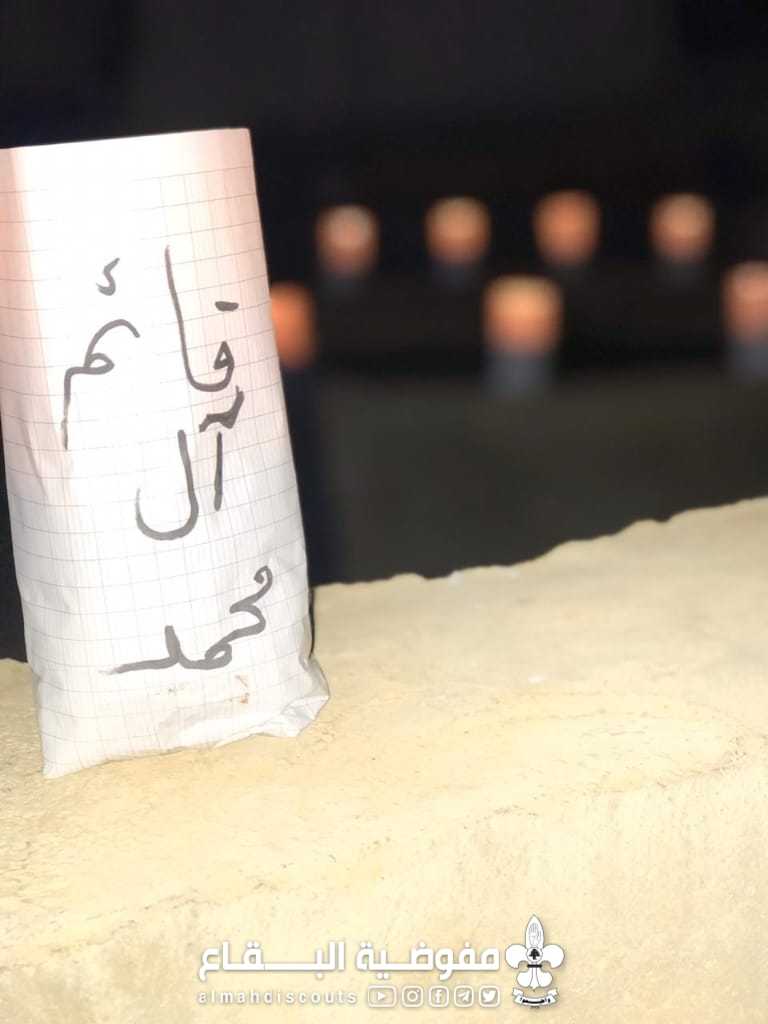 قائم
آل
محمد
مفوضية البقاع
almahdiscouts